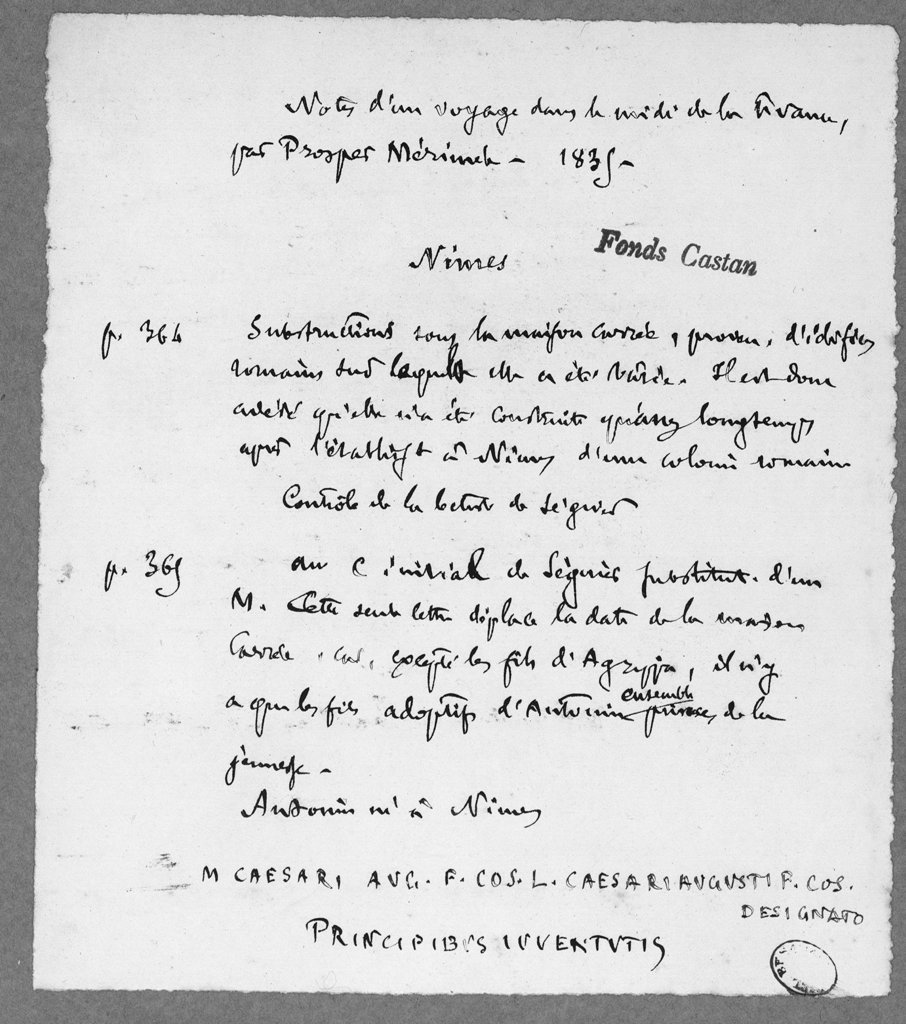 Notes d'un voyage dans le midi de la France,
par Prosper Mérimée - 1835 -
Nimes
Fonds Castan
p. 364 Substructions sous la maison carrée, d'édifices
romains sur laquelle elle a été bâtie. Il est donc
avéré qu'elle n'a été construite qu'assez longtemps
après l'établisst à Nimes d'une colonie romaine
Contrôle de la lecture de Séguier
p. 365 au C initial de Séguier substitut. d'un
M. Cette seule lettre déplace la date de la maison
Carrée, car, excepté les fils d'Agrippa, il n'y
a que les fils adoptifs d'Antonin ensemble princes de la
jeunesse -
Antonin né à Nimes
M CAESARI AUG. F. COS. L. CAESARI AUGUSTI F. COS.
DESIGNATO
PRINCIPIBUS IUVENTUTIS